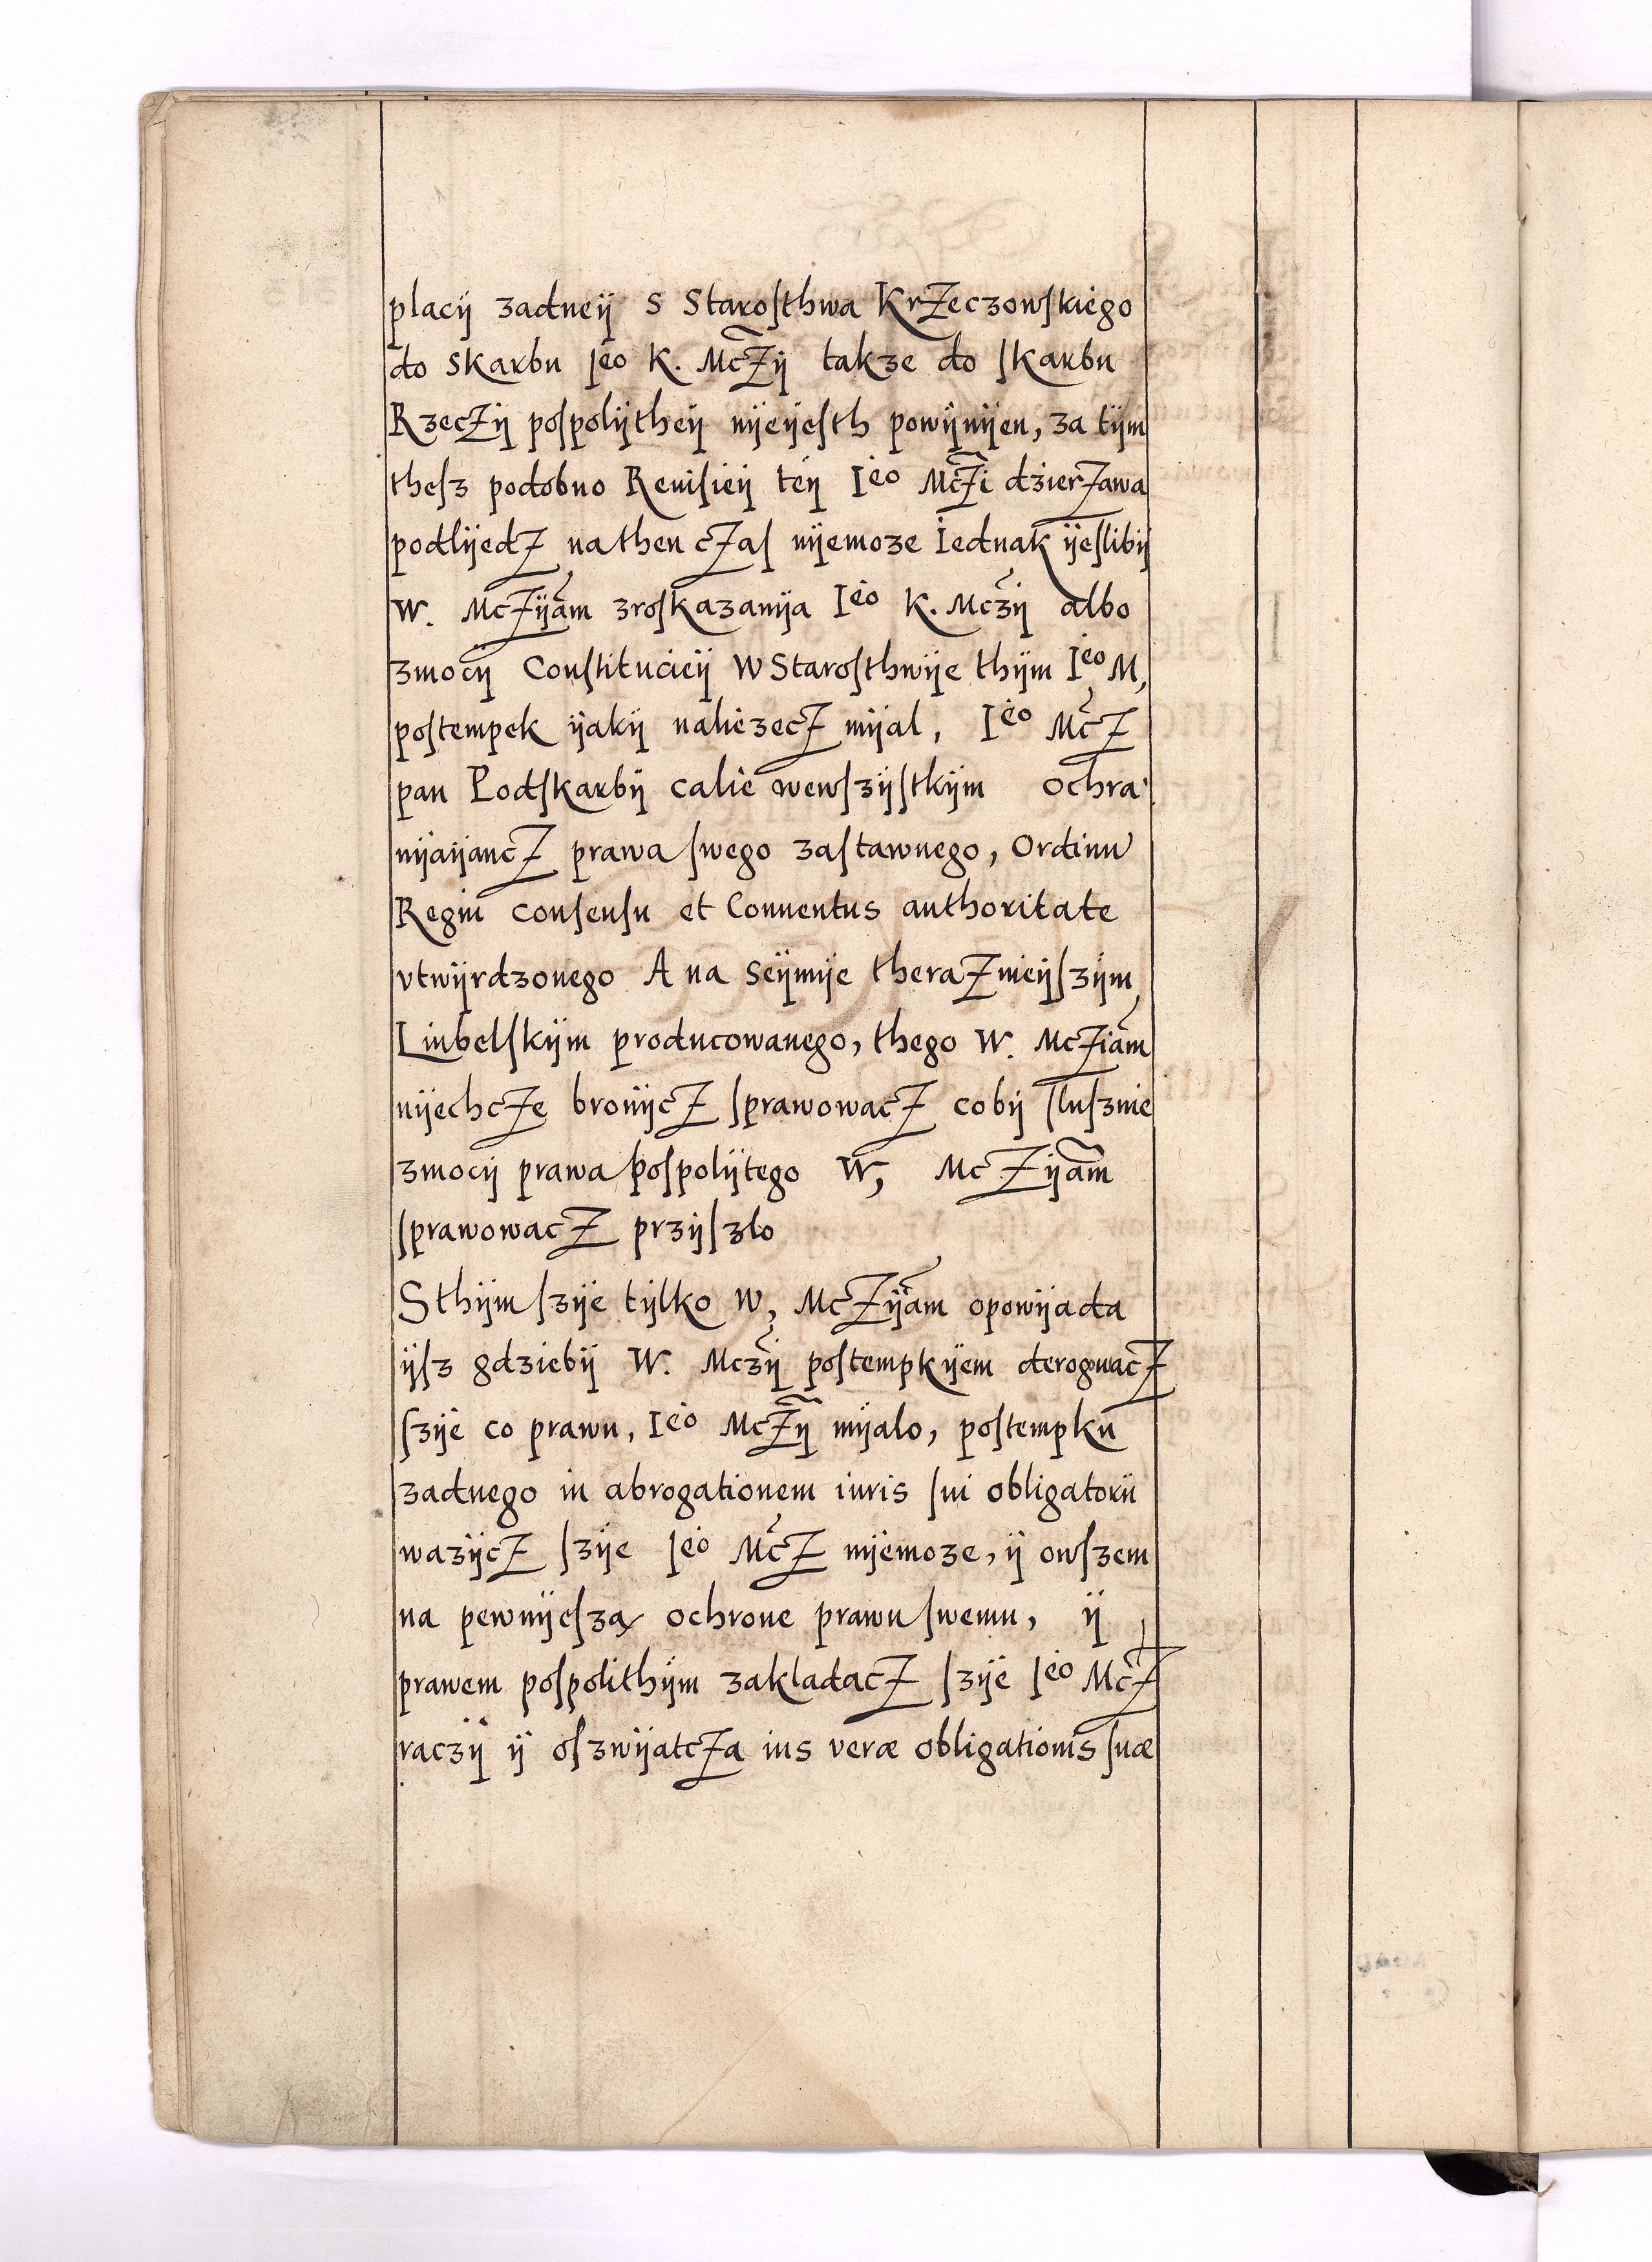 placÿ zadneÿ s Starosthwa Krzeczowskiego
do skarbu Ieo K. Mczÿ takze do skarbu
Rzeczÿ pospolÿtheÿ nÿeÿesth powÿnÿen, za tÿm
thesz podobno Reuisieÿ teÿ Ieo Mczi dzierzawa
podlÿedz na then czas nÿemoze Iednak ÿeslibÿ
W. Mczÿam zroskazanÿa Ieo K. Mczÿ albo
zmocÿ Constitucieÿ W Starosthwÿe thÿm Ieo M,
postempek ÿakÿ naliezecz mÿal, Ieo Mcz
pan Podskarbÿ calie wewszÿstkÿm ochra
nÿaÿancz prawa swego zastawnego, Ordinu
Regni consensu et Conuentus authoritate
vtwÿrdzonego A na seÿmÿe theraznieÿszÿm
Liubelskÿm producowanego, thego W. Mcziam
nÿechcze bronÿcz sprawowacz cobÿ slusznie
zmocÿ prawa pospolÿtego W, Mczÿam
sprawowacz przÿszlo
Sthÿm szÿe tÿlko W, Mczÿam opowÿada
ÿsz gdziebÿ W. Mczÿ postempkÿem derogwacz
szÿe co prawu, Ieo Mczÿ mÿalo, postempku
zadnego in abrogationem iuris sui obligatorii
wazÿcz szÿe Ieo Mcz nÿemoze, ÿ owszem
na pewnÿesza ochrone prawu swemu, ÿ
prawem pospolithÿm zakladacz szÿe Ieo Mcz
raczÿ ÿ oszwÿatcza ius veræ obligationis suæ